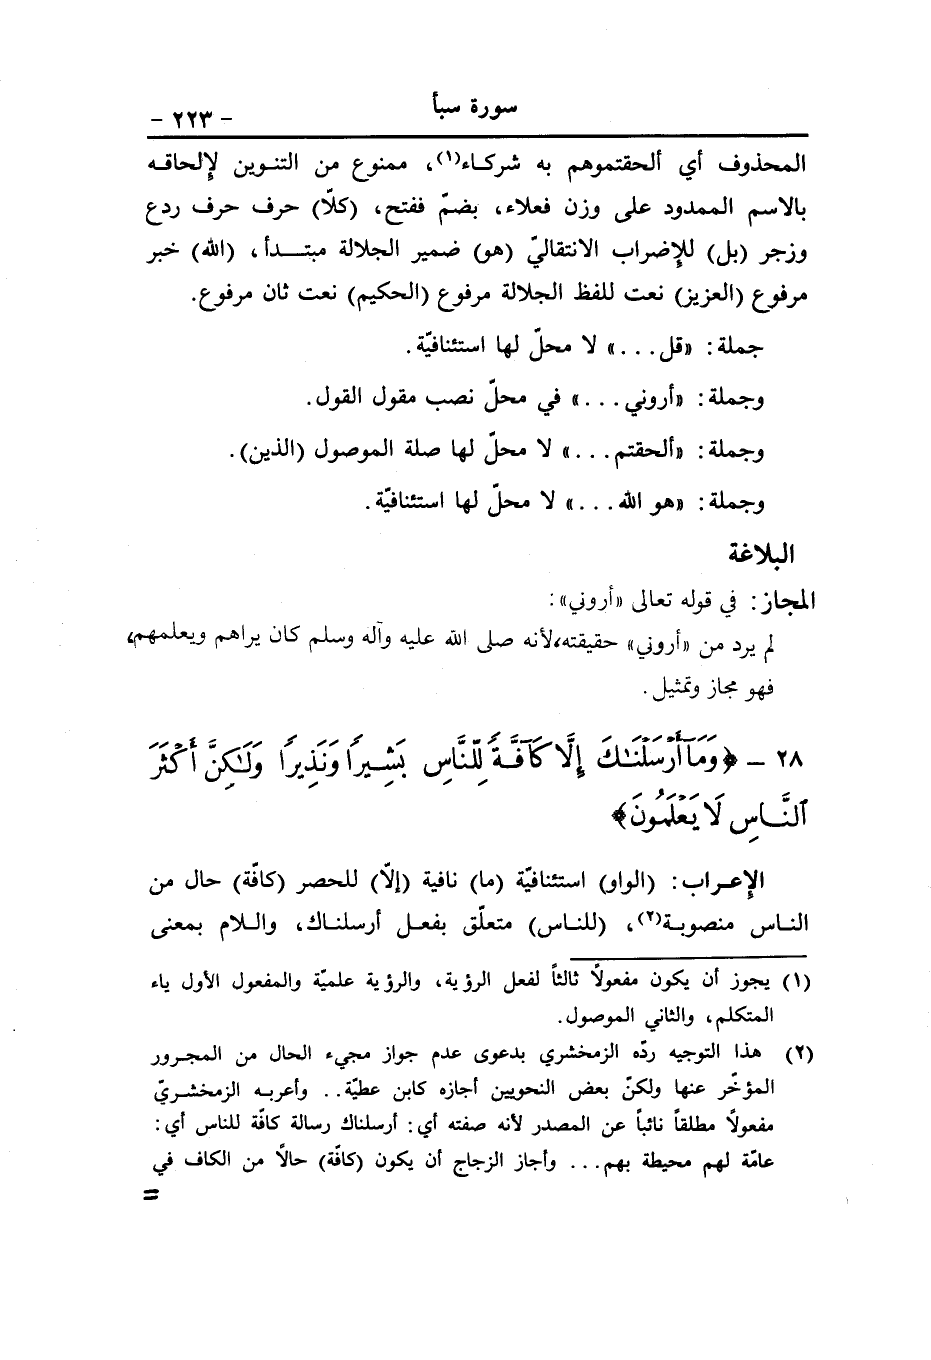 سورة سبأ
- ٢٢٣ -
المحذوف أي ألحقتموهم به شركاء(١)، ممنوع من التنوين لإلحاقه
بالاسم الممدود على وزن فعلاء، بضمّ ففتح، (كلّا) حرف حرف ردع
وزجر (بل) للإضراب الانتقاليّ (هو) ضمير الجلالة مبتدأ، (الله) خبر
مرفوع (العزيز) نعت للفظ الجلالة مرفوع (الحكيم) نعت ثان مرفوع.
جملة: «قل...» لا محلّ لها استئنافيّة.
وجملة: «أروني...» في محلّ نصب مقول القول.
وجملة: «ألحقتم...» لا محلّ لها صلة الموصول (الذين).
وجملة: «هو الله...» لا محلّ لها استئنافيّة.
البلاغة
المجاز: في قوله تعالى «أروني»:
لم يرد من «أروني» حقيقته، لأنه صلى الله عليه وآله وسلم كان يراهم ويعلمهم،
فهو مجاز وتمثيل.
٢٨ - ﴿وَمَآ أَرْسَلْنَـٰكَ إِلَّا كَآفَّةً لِّلنَّاسِ بَشِيرًا وَنَذِيرًا وَلَـٰكِنَّ أَكْثَرَ
ٱلنَّاسِ لَا يَعْلَمُونَ﴾
الإعراب: (الواو) استئنافيّة (ما) نافية (إلّا) للحصر (كافّة) حال من
الناس منصوبة(٢)، (للناس) متعلّق بفعل أرسلناك، واللام بمعنى
(١) يجوز أن يكون مفعولاً ثالثاً لفعل الرؤية، والرؤية علميّة والمفعول الأول ياء
المتكلم، والثاني الموصول.
(٢) هذا التوجيه ردّه الزمخشري بدعوى عدم جواز مجيء الحال من المجرور
المؤخّر عنها ولكنّ بعض النحويين أجازه كابن عطيّة.. وأعربه الزمخشريّ
مفعولاً مطلقاً نائباً عن المصدر لأنه صفته أي: أرسلناك رسالة كافّة للناس أي:
عامّة لهم محيطة بهم... وأجاز الزجاج أن يكون (كافّة) حالاً من الكاف في
=